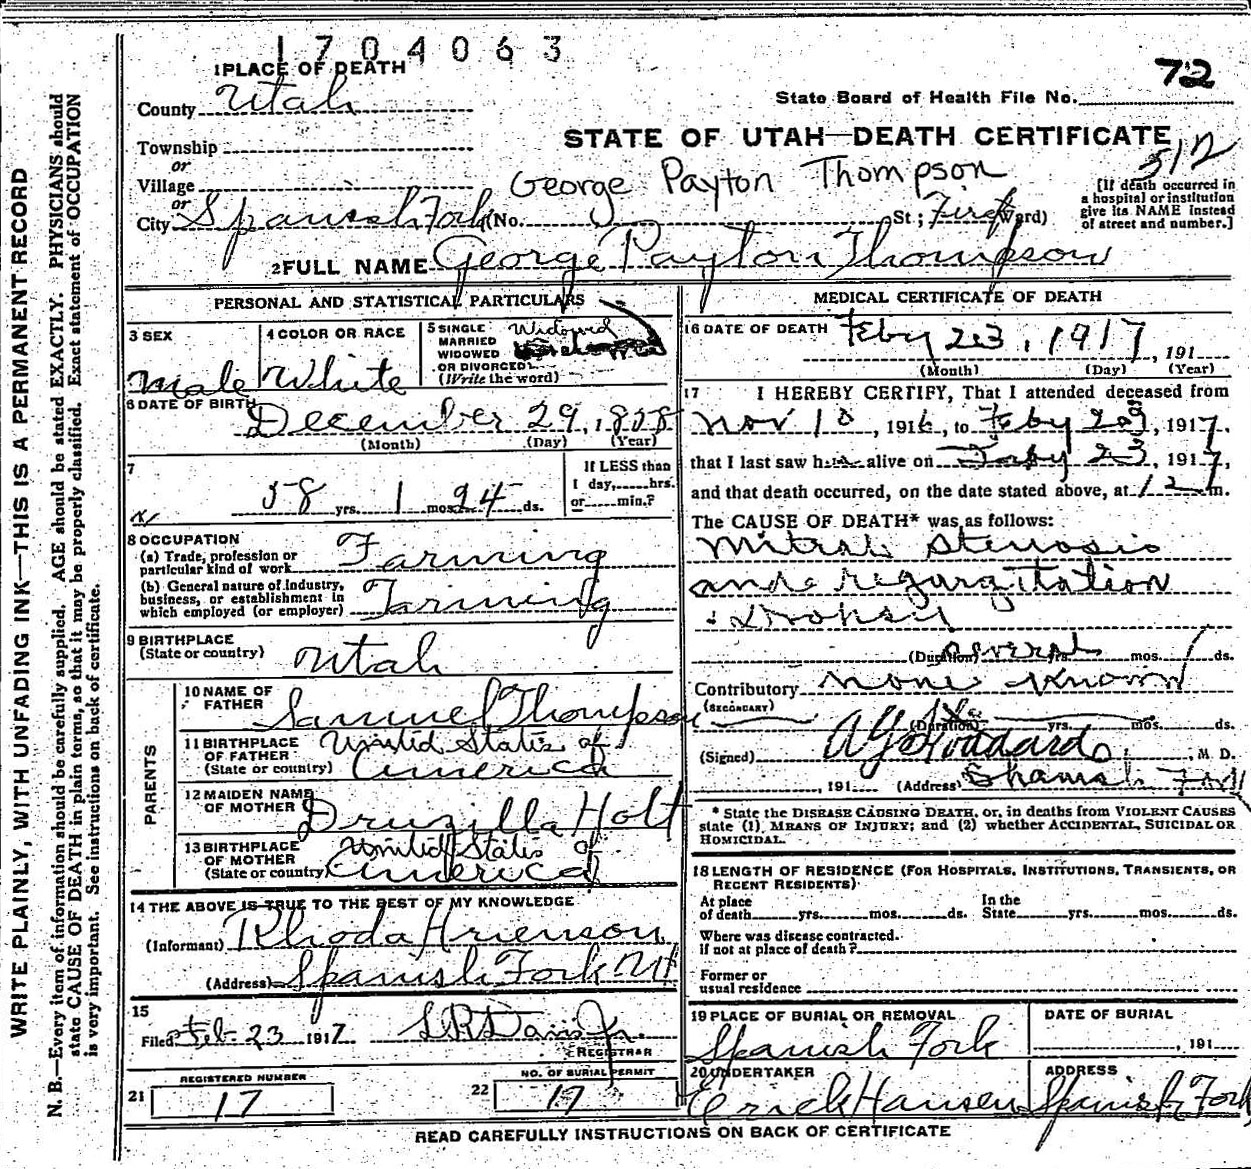 1704063
1 PLACE OF DEATH
72
County Utah
State Board of Health File No.
STATE OF UTAH—DEATH CERTIFICATE
Township
or
512
Village
George Payton Thompson
[If death occurred in
a hospital or institution
give its NAME instead
of street and number.]
or
City Spanish Fork (No. St; First Ward)
2 FULL NAME George Payton Thompson
PERSONAL AND STATISTICAL PARTICULARS
3 SEX
Male
4 COLOR OR RACE
White
5 SINGLE
MARRIED
WIDOWED
OR DIVORCED
(Write the word)
Widowed
6 DATE OF BIRTH
December 29, 1858
(Month) (Day) (Year)
7
58 yrs. 1 mos. 24 ds.
If LESS than
1 day, hrs.
or min.?
8 OCCUPATION
(a) Trade, profession or
particular kind of work Farming
(b) General nature of industry,
business, or establishment in
which employed (or employer) Farming
9 BIRTHPLACE
(State or country) Utah
PARENTS
10 NAME OF
FATHER Samuel Thompson
11 BIRTHPLACE
OF FATHER
(State or country)
United States of
America
12 MAIDEN NAME
OF MOTHER Druzilla Holt
13 BIRTHPLACE
OF MOTHER
(State or country)
United States of
America
14 THE ABOVE IS TRUE TO THE BEST OF MY KNOWLEDGE
(Informant) Rhoda
(Address) Spanish Fork Ut
15
Filed Feb 23 1917 Davis Jr.
REGISTRAR
REGISTERED NUMBER
21 17
NO. OF BURIAL PERMIT
22 17
MEDICAL CERTIFICATE OF DEATH
16 DATE OF DEATH
Feby 23, 1917, 191
(Month) (Day) (Year)
17 I HEREBY CERTIFY, That I attended deceased from
Nov 10, 1916, to Feby, 1917,
that I last saw him alive on Feby 23, 1917,
and that death occurred, on the date stated above, at 12 m.
The CAUSE OF DEATH* was as follows:
Mitral Stenosis
and regurgitation
Dropsy
(Duration) several yrs. mos. ds.
Contributory None Known
(SECONDARY)
(Duration) yrs. mos. ds.
(Signed) Goddard, M. D.
, 191 (Address) Spanish Fork
* State the DISEASE CAUSING DEATH, or, in deaths from VIOLENT CAUSES
state (1) MEANS OF INJURY; and (2) whether ACCIDENTAL, SUICIDAL OR
HOMICIDAL.
18 LENGTH OF RESIDENCE (FOR HOSPITALS, INSTITUTIONS, TRANSIENTS, OR
RECENT RESIDENTS)
At place
of death yrs. mos. ds.
In the
State yrs. mos. ds.
Where was disease contracted.
if not at place of death?
Former or
usual residence
19 PLACE OF BURIAL OR REMOVAL
Spanish Fork
DATE OF BURIAL
, 191
20 UNDERTAKER
Erick Hansen
ADDRESS
Spanish Fork
READ CAREFULLY INSTRUCTIONS ON BACK OF CERTIFICATE
WRITE PLAINLY, WITH UNFADING INK—THIS IS A PERMANENT RECORD
N. B.—Every item of information should be carefully supplied. AGE should be stated EXACTLY. PHYSICIANS should
state CAUSE OF DEATH in plain terms, so that it may be properly classified. Exact statement of OCCUPATION
is very important. See instructions on back of certificate.